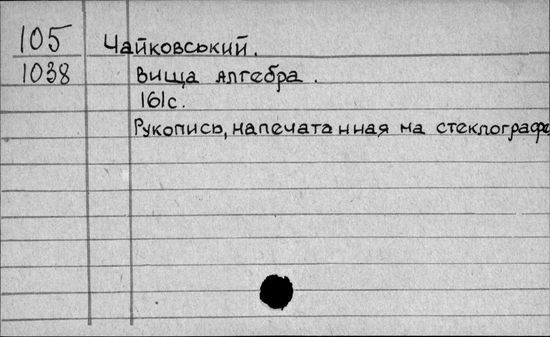 105 Чайковський.
1038 Вища алгебра.
161с.
Рукопись, напечатанная на стеклографе